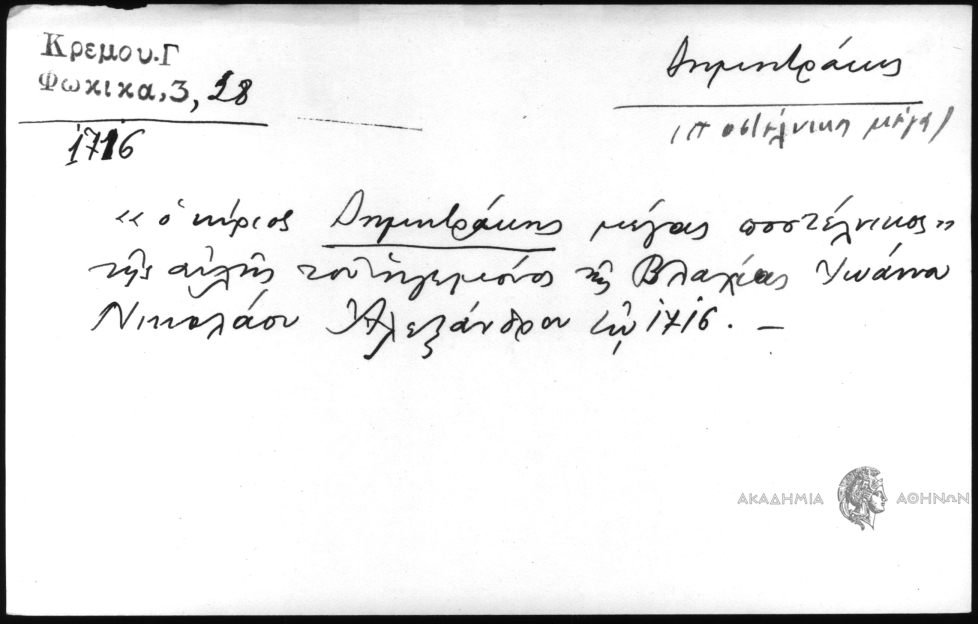 Κρεμου.Γ
Φωκικα,3, 28
1716
Δημητράκης
(Ποστέλνικη μέγα)
« ὁ κύριος Δημητράκης μέγας ποστέλνικος »
τῆς αὐλῆς τοῦ ἡγεμόνος τῆς Βλαχίας Ἰωάννου
Νικολάου Ἀλεξάνδρου τῷ 1716. —
ΑΚΑΔΗΜΙΑ ΑΘΗΝΩΝ